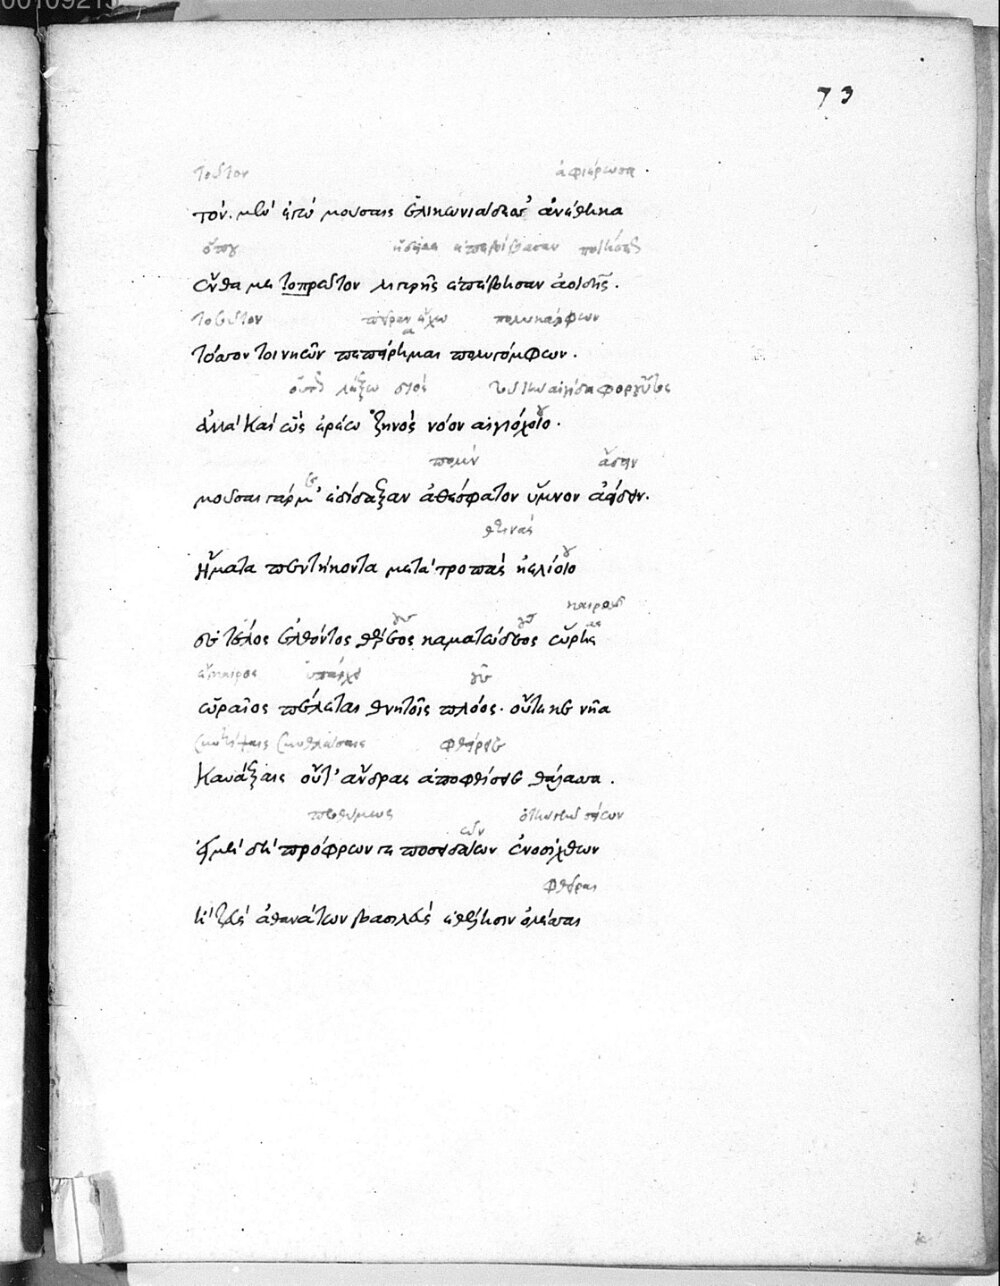 00109215
73
τοῦτον ἀφιέρωσα.
τὸν μὲν ἐγὼ μούσαις ἑλικωνιάδεσσ' ἀνέθηκα
ὅπου ἐπεβίβασαν
ἔνθα με τοπρῶτον λιγυρῆς ἐπέβησαν ἀοιδῆς.
τοσοῦτον πεῖραν ἔχω πολυκάρφων
τόσσον τοι νηῶν πεπείρημαι πολυγόμφων.
λέξω διὸς τοῦ τὴν αἰγίδα φοροῦντος
ἀλλὰ καὶ ὣς ἐρέω ζηνὸς νόον αἰγιόχοιο.
πολὺν ᾄδειν
μοῦσαι γάρ μ' ἐδίδαξαν ἀθέσφατον ὕμνον ἀείδειν.
θερινὰς
ἤματα πεντήκοντα μετὰ τροπὰς ἠελίοιο
καιροῦ
ἐς τέλος ἐλθόντος θέρεος καματώδεος ὥρης
εὔκαιρος ὑπάρχει
ὡραῖος πέλεται θνητοῖς πλόος. οὔτε κε νῆα
φθείρει
καυάξαις οὔτ' ἄνδρας ἀποφθίσειε θάλασσα.
προθύμως
εἰ μὴ δὴ πρόφρων γε ποσειδάων ἐνοσίχθων
φθεῖραι
ἢ ζεὺς ἀθανάτων βασιλεὺς ἐθέλησιν ὀλέσσαι